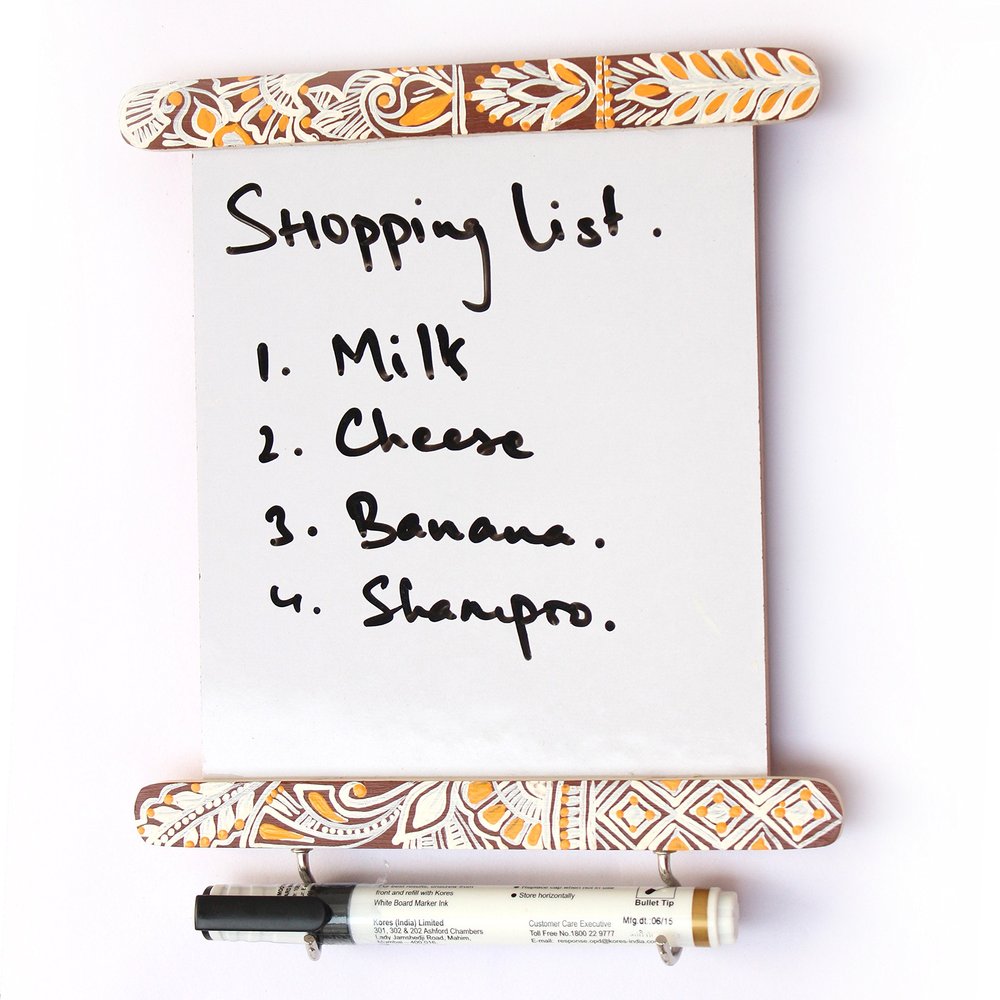 SHopping List.
1. Milk
2. Cheese
3. Banana.
4. Shampoo.
front and refill with Kores
White Board Marker Ink
Kores (India) Limited
301, 302 & 202 Ashford Chambers
Lady Jamshedji Road, Mahim,
• Store horizontally
Customer Care Executive
Toll Free No.1800 22 9777
E-mail: response.opd@kores-india.co
Mfg.dt.:06/15
Bullet Tip